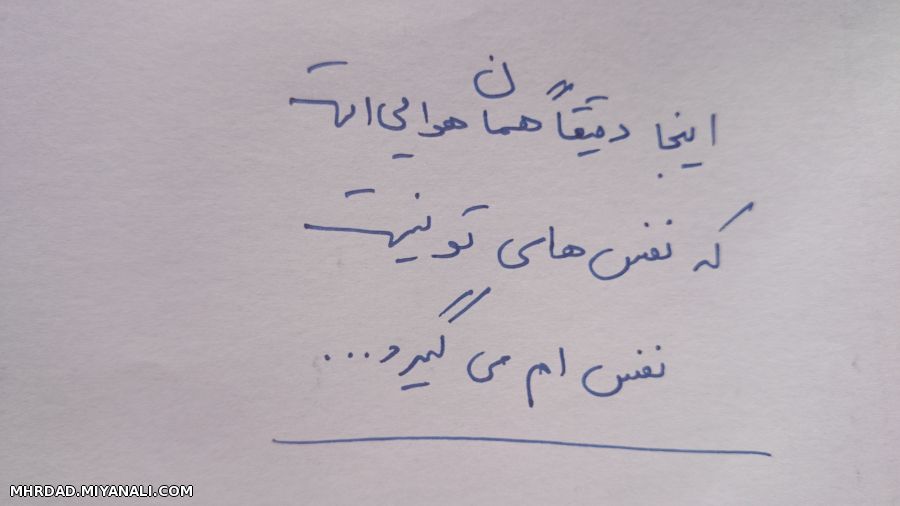 اینجا دقیقاً همان هوایی است
که نفس های تو نیست
نفس ام می گیرد...
MHRDAD.MIYANALI.COM